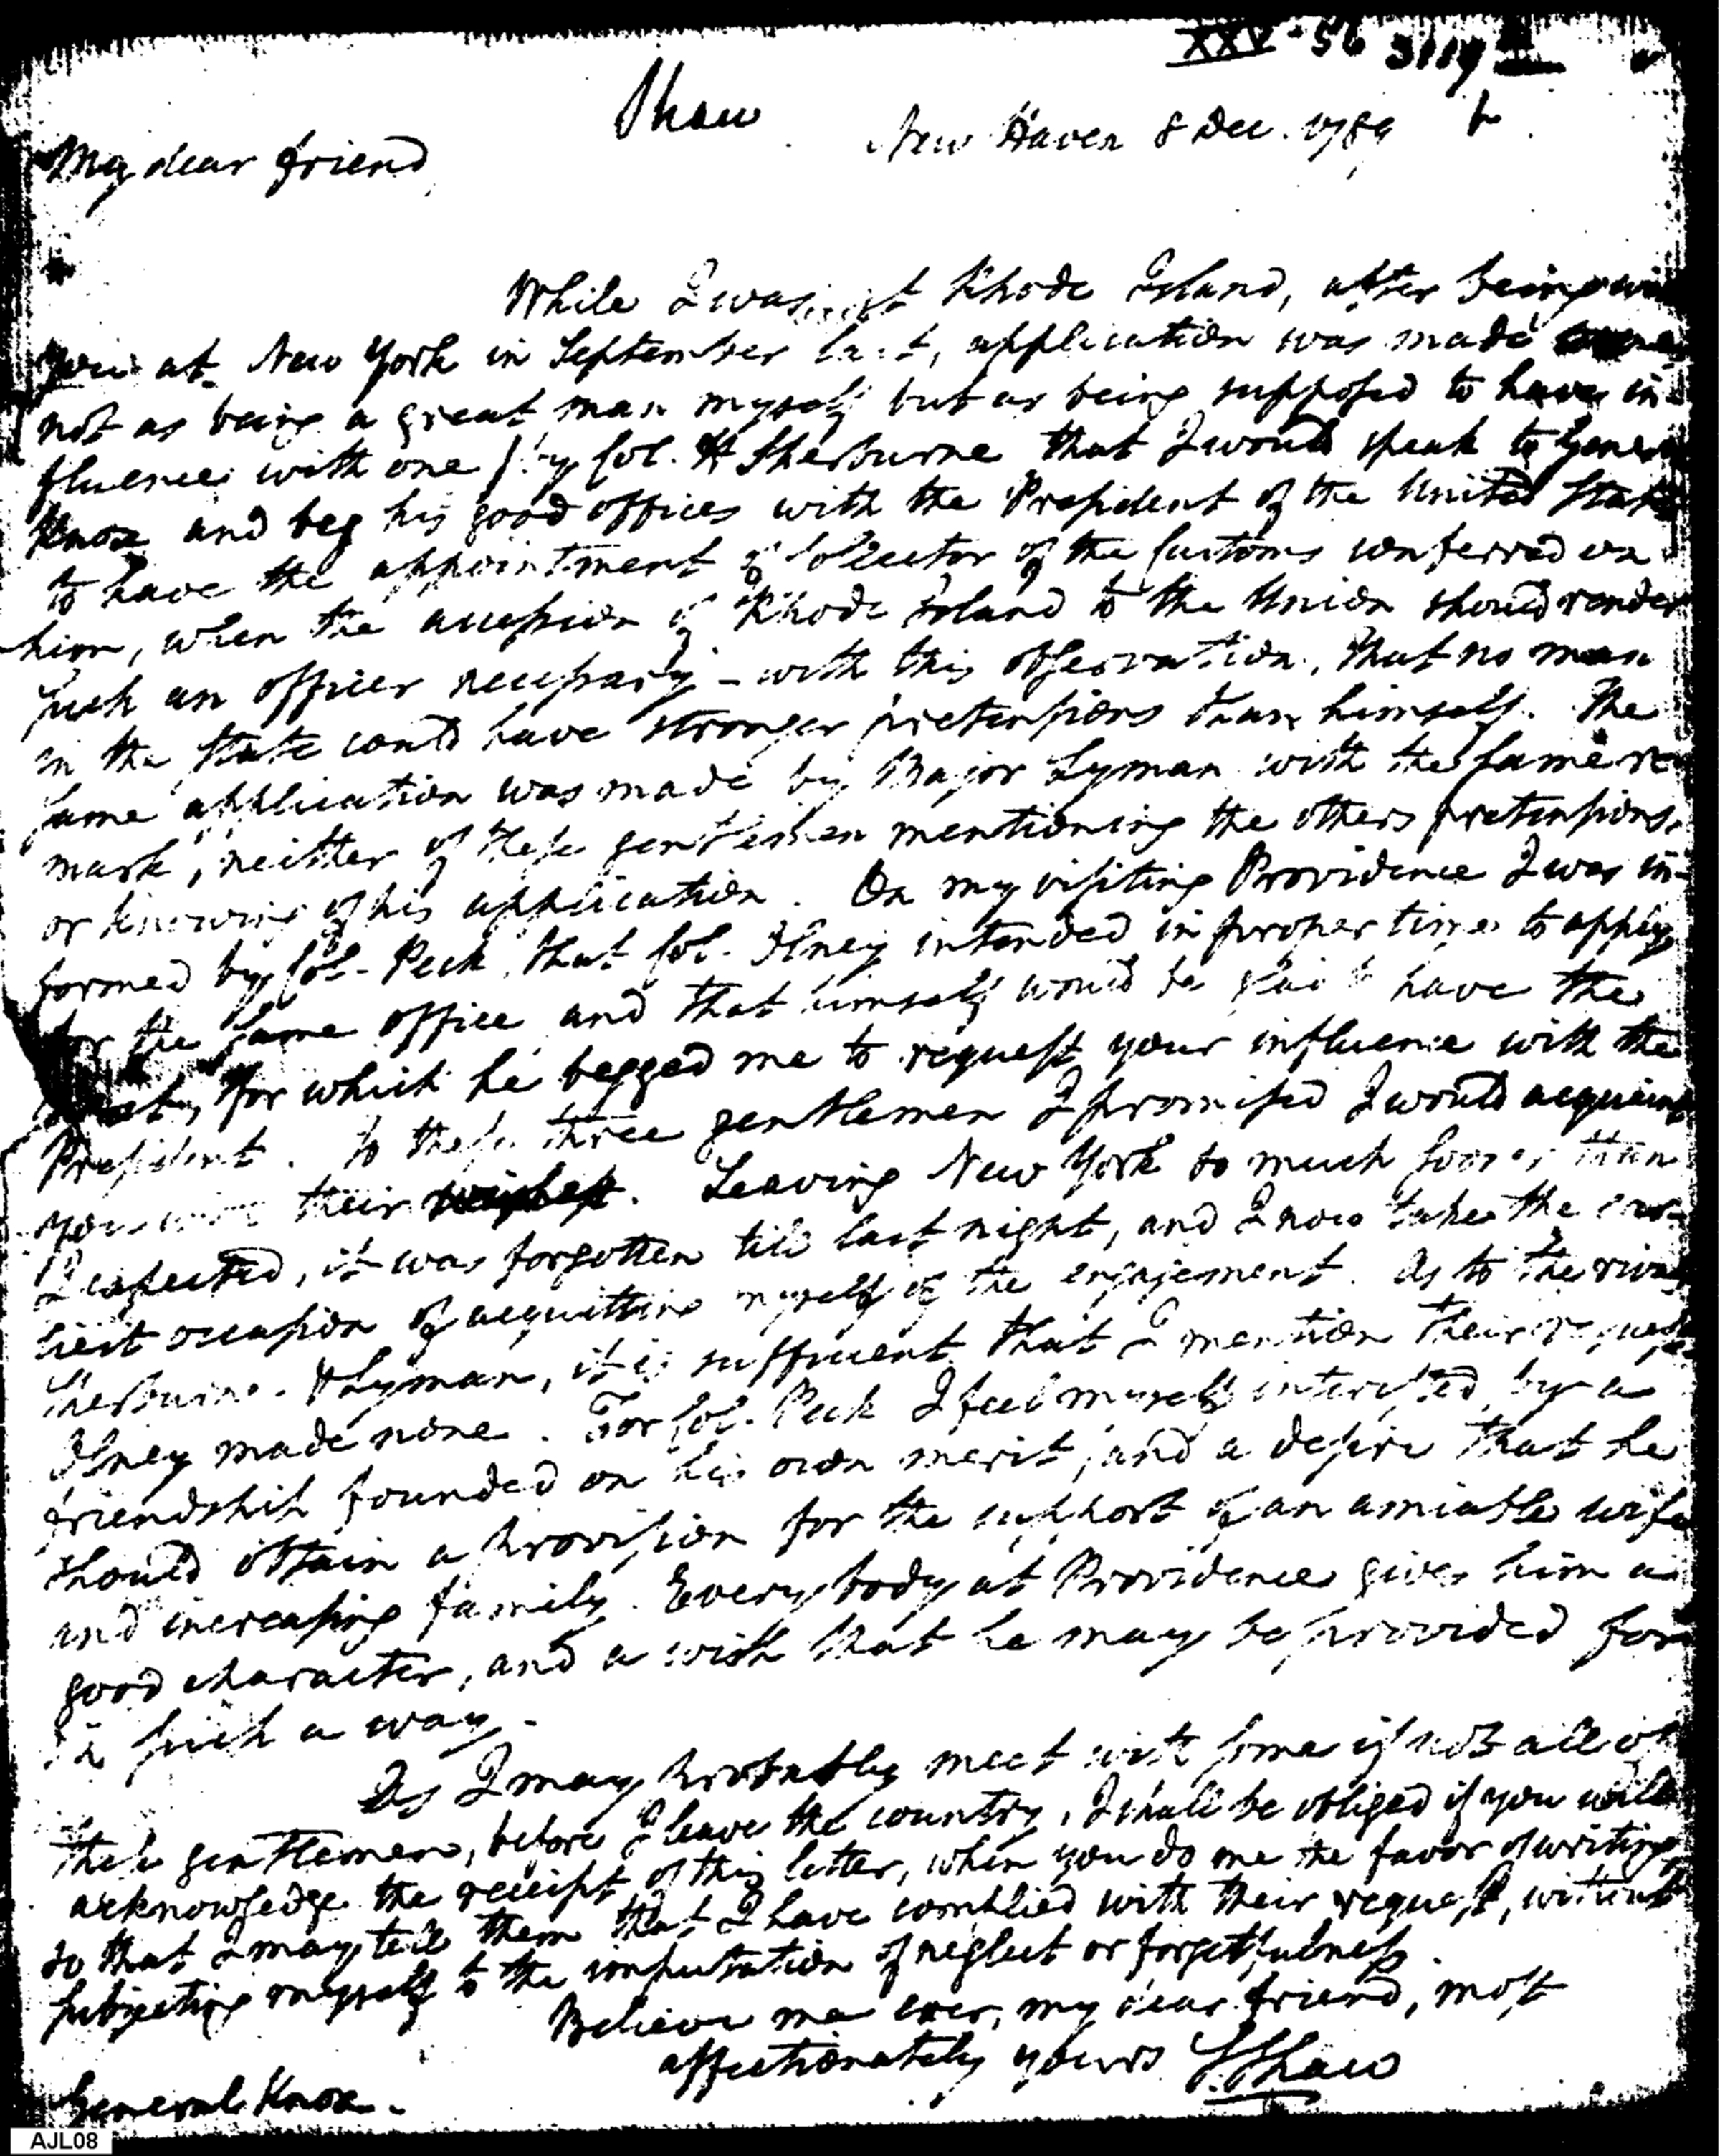 XXV-56 3119
Shaw
New Haven 8 Dec. 1789
My dear friend,
While I was at Rhode Island, after being
you at New York in September last, application was made
not as being a great man myself but as being supposed to have in-
fluence with one) by Col. H Sherburne that I would speak to General
Knox and beg his good offices with the President of the United States
to have the appointment of Collector of the Customs conferred on
him, when the accession of Rhode Island to the Union should render
such an officer necessary – with this observation, that no man
in the State could have stronger pretensions than himself. The
same application was made by Major Lyman with the same re
mark, neither of these gentlemen mentioning the others pretensions,
or knowing of his application. On my visiting Providence I was in-
formed by Col. Peck, that Col. Olney intended in proper time to apply
for the same office and that himself would be glad to have the
for which he begged me to request your influence with the
President. To these three gentlemen I promised I would acquaint
you with their wishes. Leaving New York so much sooner than
I expected, it was forgotten till last night, and I now take the ear-
liest occasion of acquitting myself of the engagement. As to the rivals
Sherburne & Lyman, it is sufficient that I mention their request
Olney made none. For Col. Peck I feel myself interested by a
friendship founded on his own merit, and a desire that he
should obtain a provision for the support of an amiable wife
and increasing family. Every body at Providence gives him a
good character, and a wish that he may be provided for
in such a way.
As I may probably meet with some if not all of
these gentlemen, before I leave the country, I shall be obliged if you will
acknowledge the receipt of this letter, when you do me the favor of writing,
so that I may tell them that I have complied with their request, without
subjecting myself to the imputation of neglect or forgetfulness.
Believe me ever, my dear friend, most
affectionately yours S. Shaw
General Knox.
AJL08